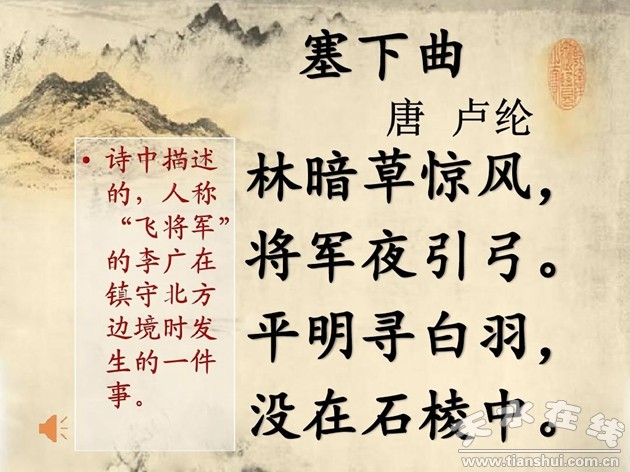 塞下曲
唐 卢纶
林暗草惊风，
将军夜引弓。
平明寻白羽，
没在石棱中。
•诗中描述
的，人称
“飞将军”
的李广在
镇守北方
边境时发
生的一件
事。
天水在线
www.tianshui.com.cn